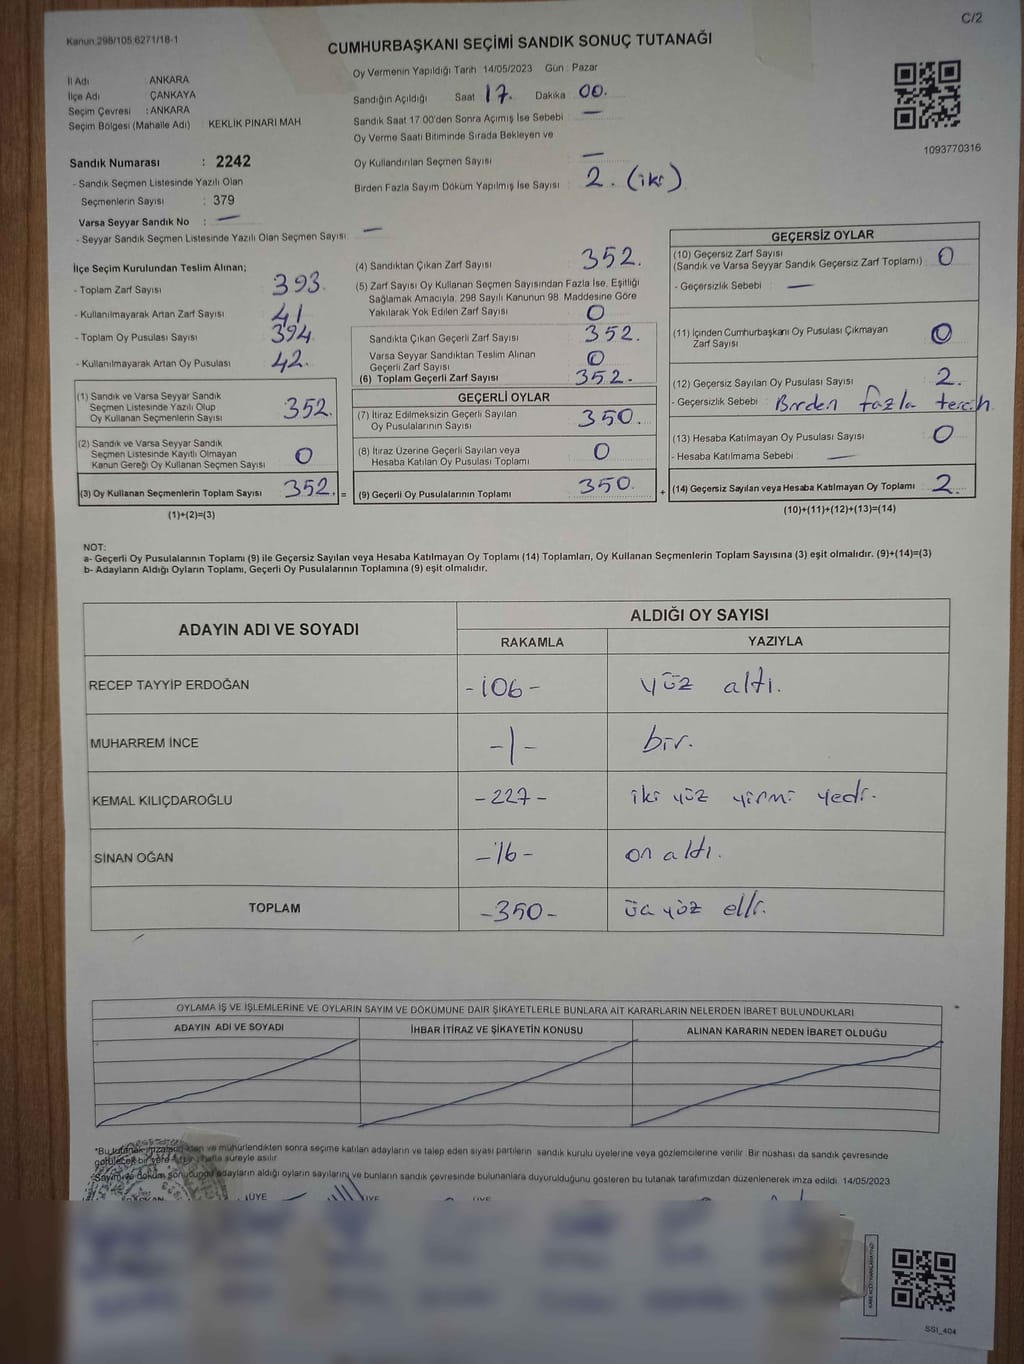 C/2
Kanun 298/105 6271/18-1
CUMHURBAŞKANI SEÇİMİ SANDIK SONUÇ TUTANAĞI
İl Adı : ANKARA
İlçe Adı : ÇANKAYA
Seçim Çevresi : ANKARA
Seçim Bölgesi (Mahalle Adı) : KEKLİK PINARI MAH
Oy Vermenin Yapıldığı Tarih 14/05/2023 Gün : Pazar
Sandığın Açıldığı Saat 17. Dakika 00.
Sandık Saat 17 00'den Sonra Açımış İse Sebebi —
Oy Verme Saati Bitiminde Sırada Bekleyen ve
Oy Kullandırılan Seçmen Sayısı —
Birden Fazla Sayım Döküm Yapılmış İse Sayısı 2. (iki)
1093770316
Sandık Numarası : 2242
- Sandık Seçmen Listesinde Yazılı Olan
Seçmenlerin Sayısı : 379
Varsa Seyyar Sandık No : —
- Seyyar Sandık Seçmen Listesinde Yazılı Olan Seçmen Sayısı —
İlçe Seçim Kurulundan Teslim Alınan;
- Toplam Zarf Sayısı 393.
- Kullanılmayarak Artan Zarf Sayısı 41
- Toplam Oy Pusulası Sayısı 394
- Kullanılmayarak Artan Oy Pusulası 42.
(1) Sandık ve Varsa Seyyar Sandık
Seçmen Listesinde Yazılı Olup
Oy Kullanan Seçmenlerin Sayısı 352.
(2) Sandık ve Varsa Seyyar Sandık
Seçmen Listesinde Kayıtlı Olmayan
Kanun Gereği Oy Kullanan Seçmen Sayısı 0
(3) Oy Kullanan Seçmenlerin Toplam Sayısı 352. =
(1)+(2)=(3)
(4) Sandıktan Çıkan Zarf Sayısı 352.
(5) Zarf Sayısı Oy Kullanan Seçmen Sayısından Fazla İse, Eşitliği
Sağlamak Amacıyla, 298 Sayılı Kanunun 98. Maddesine Göre
Yakılarak Yok Edilen Zarf Sayısı 0
Sandıkta Çıkan Geçerli Zarf Sayısı 352.
Varsa Seyyar Sandıktan Teslim Alınan
Geçerli Zarf Sayısı 0
(6) Toplam Geçerli Zarf Sayısı 352.
GEÇERLİ OYLAR
(7) İtiraz Edilmeksizin Geçerli Sayılan
Oy Pusulalarının Sayısı 350.
(8) İtiraz Üzerine Geçerli Sayılan veya
Hesaba Katılan Oy Pusulası Toplamı 0
(9) Geçerli Oy Pusulalarının Toplamı 350. +
GEÇERSİZ OYLAR
(10) Geçersiz Zarf Sayısı
(Sandık ve Varsa Seyyar Sandık Geçersiz Zarf Toplamı) : 0
- Geçersizlik Sebebi : —
(11) İçinden Cumhurbaşkanı Oy Pusulası Çıkmayan
Zarf Sayısı 0
(12) Geçersiz Sayılan Oy Pusulası Sayısı 2.
- Geçersizlik Sebebi : Birden fazla tercih
(13) Hesaba Katılmayan Oy Pusulası Sayısı 0
- Hesaba Katılmama Sebebi : —
(14) Geçersiz Sayılan veya Hesaba Katılmayan Oy Toplamı 2.
(10)+(11)+(12)+(13)=(14)
NOT:
a- Geçerli Oy Pusulalarının Toplamı (9) ile Geçersiz Sayılan veya Hesaba Katılmayan Oy Toplamı (14) Toplamları, Oy Kullanan Seçmenlerin Toplam Sayısına (3) eşit olmalıdır. (9)+(14)=(3)
b- Adayların Aldığı Oyların Toplamı, Geçerli Oy Pusulalarının Toplamına (9) eşit olmalıdır.
ADAYIN ADI VE SOYADI ALDIĞI OY SAYISI
RAKAMLA YAZIYLA
RECEP TAYYİP ERDOĞAN -106- yüz altı.
MUHARREM İNCE -1- bir.
KEMAL KILIÇDAROĞLU -227- iki yüz yirmi yedi.
SİNAN OĞAN -16- on altı.
TOPLAM -350- üç yüz elli.
OYLAMA İŞ VE İŞLEMLERİNE VE OYLARIN SAYIM VE DÖKÜMÜNE DAİR ŞİKAYETLERLE BUNLARA AİT KARARLARIN NELERDEN İBARET BULUNDUKLARI
ADAYIN ADI VE SOYADI İHBAR İTİRAZ VE ŞİKAYETİN KONUSU ALINAN KARARIN NEDEN İBARET OLDUĞU
*Bu tutanak imzalandıktan ve mühürlendikten sonra seçime katılan adayların ve talep eden siyasi partilerin sandık kurulu üyelerine veya gözlemcilerine verilir Bir nüshası da sandık çevresinde
bir hafta süreyle asılır
Sayım ve döküm sonucunda adayların aldığı oyların sayılarını ve bunların sandık çevresinde bulunanlara duyurulduğunu gösteren bu tutanak tarafımızdan düzenlenerek imza edildi. 14/05/2023
ÜYE ÜYE ÜYE
SSİ_404